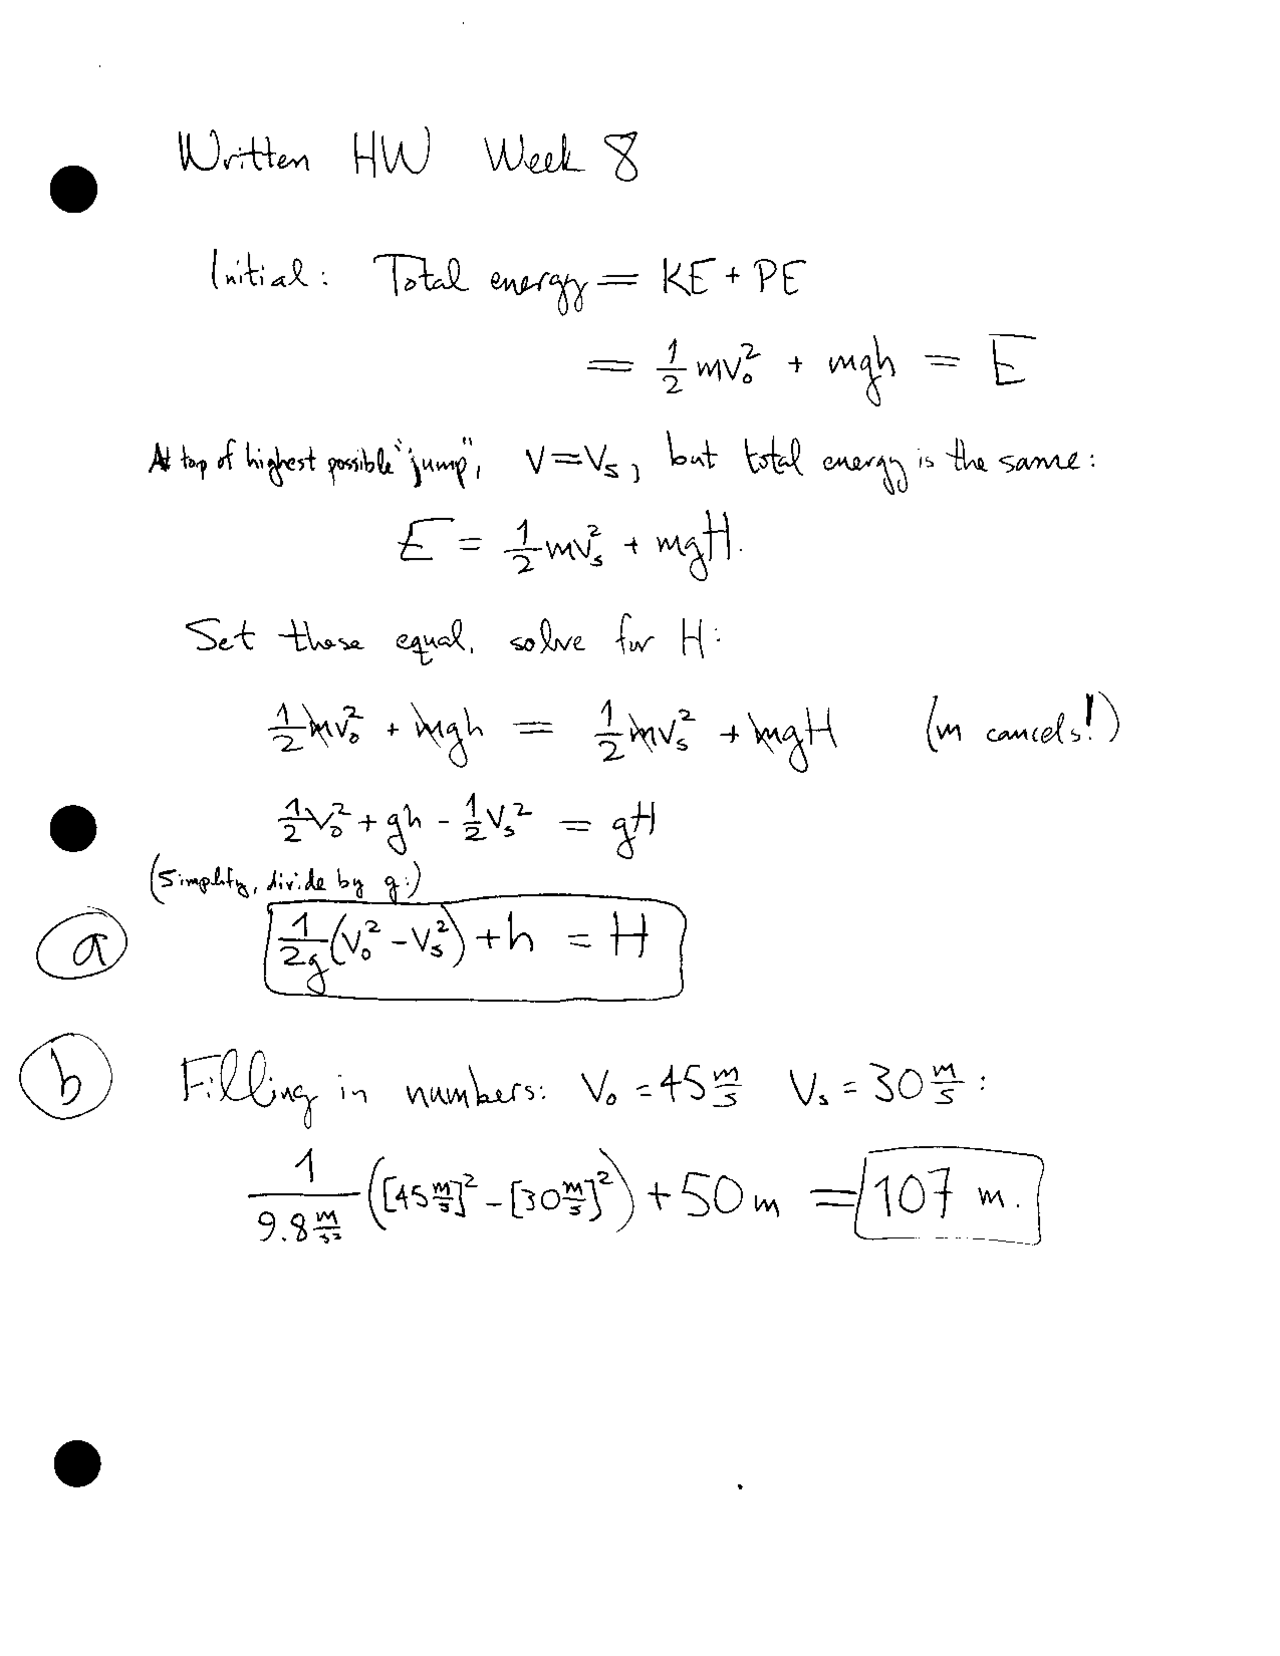 Written HW Week 8
Initial: Total energy = KE + PE
= 1/2 mv₀² + mgh = E
At top of highest possible "jump", V=Vₛ, but total energy is the same:
E = 1/2 mvₛ² + mgH.
Set these equal, solve for H:
1/2 mv₀² + mgh = 1/2 mvₛ² + mgH (m cancels!)
1/2 v₀² + gh - 1/2 vₛ² = gH
(Simplify, divide by g:)
a 1/2g (v₀² - vₛ²) + h = H
b Filling in numbers: V₀ = 45 m/s Vₛ = 30 m/s :
1/9.8 m/s² ([45 m/s]² - [30 m/s]²) + 50 m = 107 m.